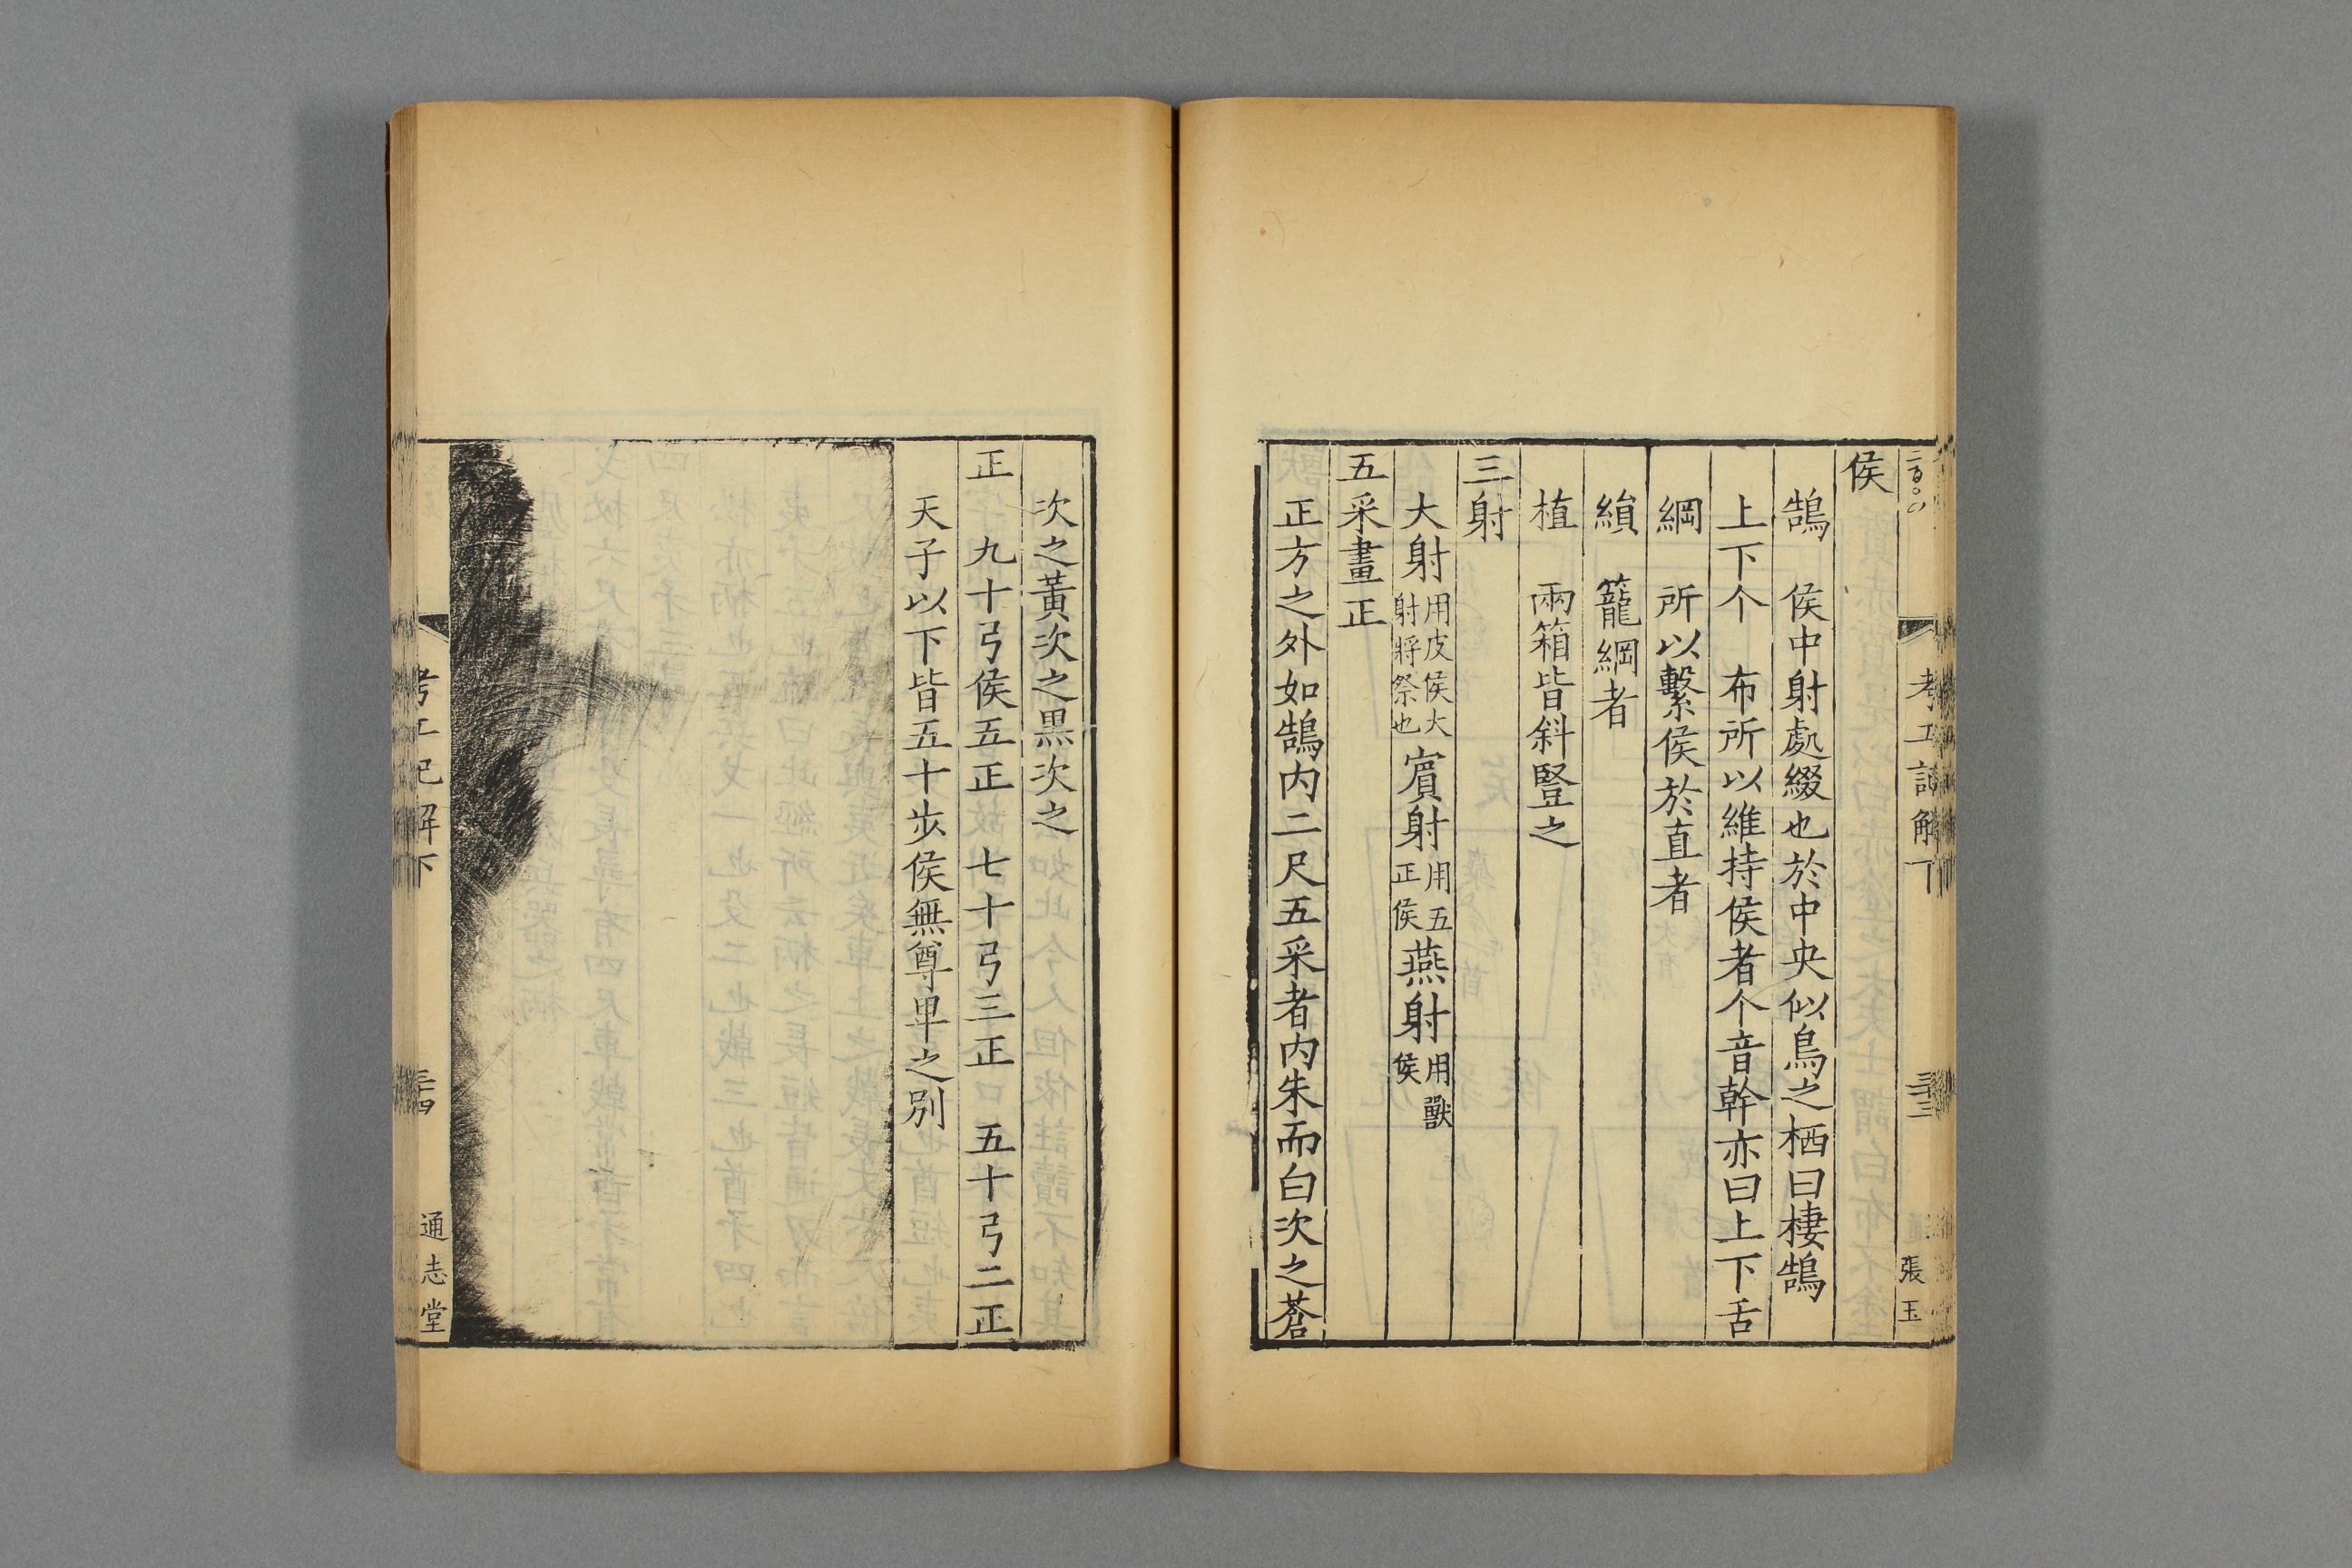 侯
鵠　侯中射處綴也於中央似鳥之栖曰棲鵠
上下个　布所以維持侯者个音幹亦曰上下舌
綱　所以繫侯於直者
縜　籠綱者
植　兩箱皆斜豎之
三射
大射用皮侯大射將祭也賓射用五正侯燕射用獸侯
五采畫正
正方之外如鵠内二尺五采者内朱而白次之蒼
考工記解下
三十三
張玉
次之黃次之黒次之
正　九十弓侯五正　七十弓三正　五十弓二正
天子以下皆五十步侯無尊卑之别
考工記解下
三十四
通志堂